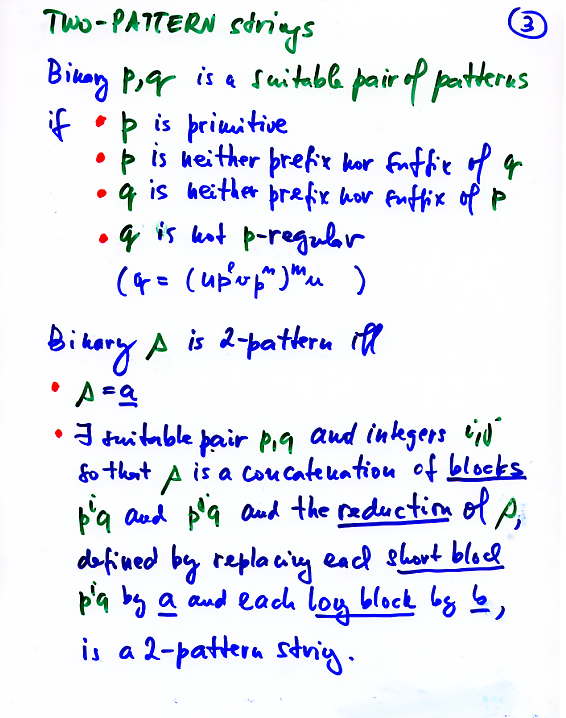 TWO-PATTERN strings
3
Binary p,q is a suitable pair of patterns
if • p is primitive
• p is neither prefix nor suffix of q
• q is neither prefix nor suffix of p
• q is not p-regular
(q = (up^l v p^n)^m u )
Binary s is 2-pattern iff
• s = a
• ∃ suitable pair p,q and integers i,j
so that s is a concatenation of blocks
p^i q and p^j q and the reduction of s,
defined by replacing each short block
p^i q by a and each long block by b,
is a 2-pattern string.